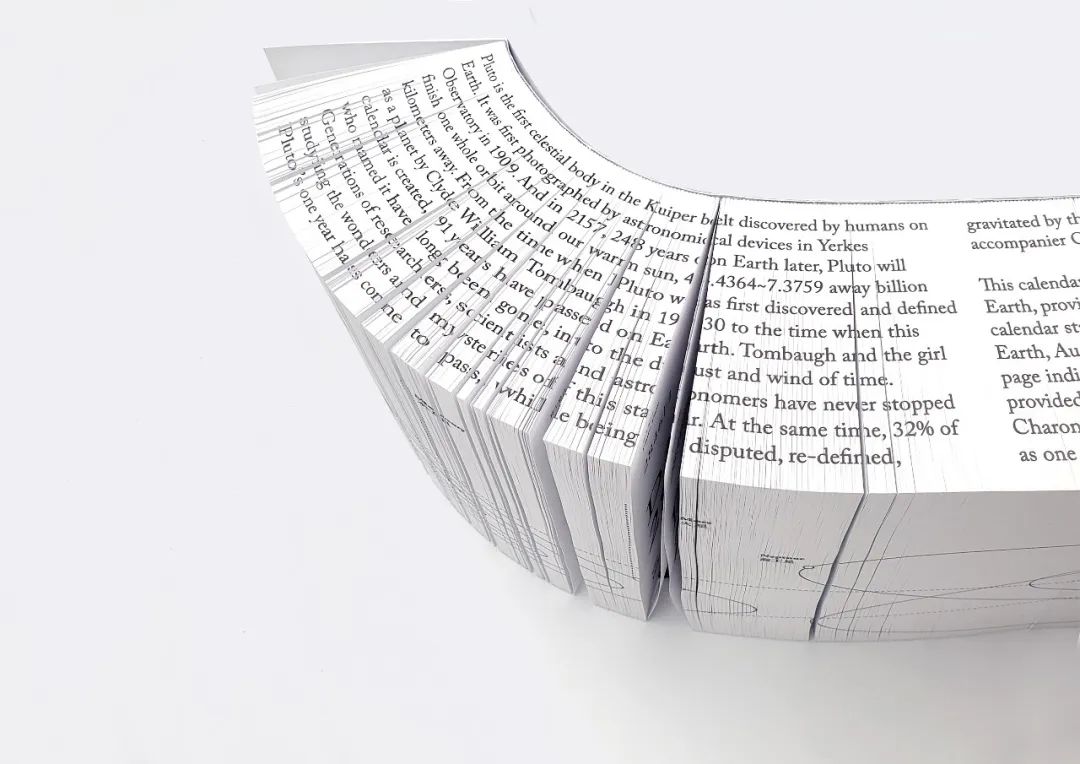 Pluto is the first celestial body in the Kuiper belt discovered by humans on
Earth. It was first photographed by astronomical devices in Yerkes
Observatory in 1909. And in 2157, 248 years on Earth later, Pluto will
finish one whole orbit around our warm sun, 4.4364~7.3759 away billion
kilometers away. From the time when Pluto was first discovered and defined
as a planet by Clyde William Tombaugh in 1930 to the time when this
calendar is created, 91 years have passed on Earth. Tombaugh and the girl
who named it have long been gone, into the dust and wind of time.
Generations of researchers, scientists and astronomers have never stopped
studying the wonders and mysteries of this star. At the same time, 32% of
Pluto's one year has come to pass, while being disputed, re-defined,
gravitated by th
accompanier C
This calenda
Earth, provi
calendar st
Earth, Au
page indi
provided
Charon
as one
Neptune